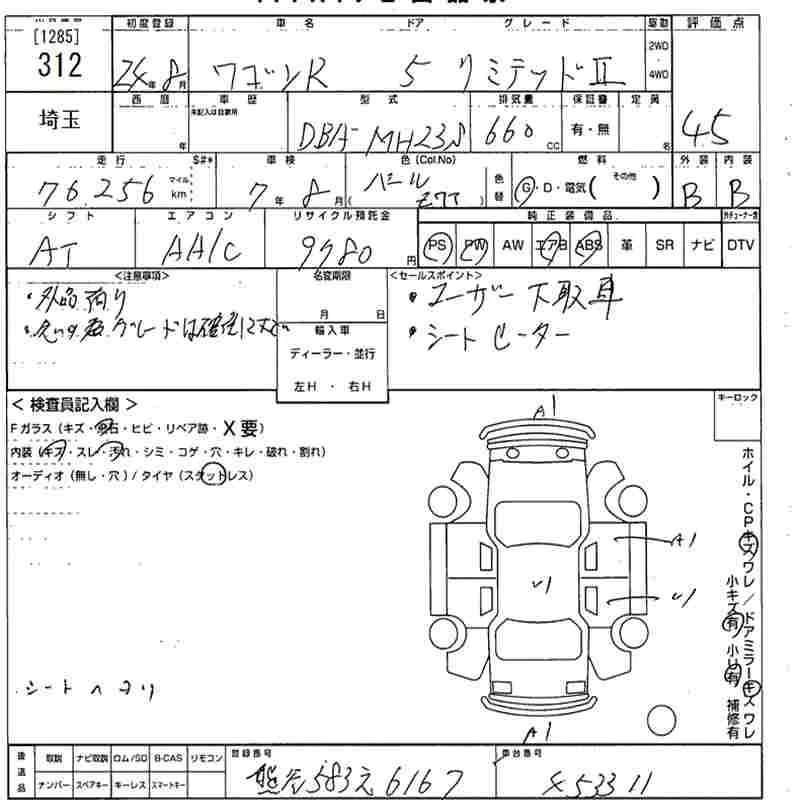 [1285]
312
初度登録 車名 ドア グレード 駆動 評価点
24年8月 ワゴンR 5 リミテッドII 2WD・4WD
埼玉
西暦 車歴 型式 排気量 保証書 定員
年 未記入は自家用 DBA-MH23S 660 CC 有・無 名 45
走行 S#* 車検 色(Col.No) 燃料 外装 内装
76.256 マイル km 7年8月 ( パール ZY7 ) 色替 G・D・電気( その他 ) B B
シフト エアコン リサイクル預託金 純正装備品
AT AA/C 9780円 PS PW AW エアB ABS 革 SR ナビ DTV
<注意事項> 名変期限 <セールスポイント>
・外品有り ・ユーザー下取車
月 日 ・シートヒーター
輸入車
ディーラー・並行
左H ・ 右H
< 検査員記入欄 > キーロック
Fガラス (キズ・飛石・ヒビ・リペア跡・X要)
内装 (キズ・スレ・汚れ・シミ・コゲ・穴・キレ・破れ・割れ)
オーディオ (無し・穴) / タイヤ (スタッドレス)
A1
A1
U1
U1
A1
ホイル・CPキズワレ / ドアミラーキズワレ
小キズ有 小凹有 補修有
シートヘタリ
後送品 取説 ナビ取説 ロム/SD B-CAS リモコン 登録番号 車台番号
ナンバー スペアキー キーレス スマートキー 熊谷583え6167